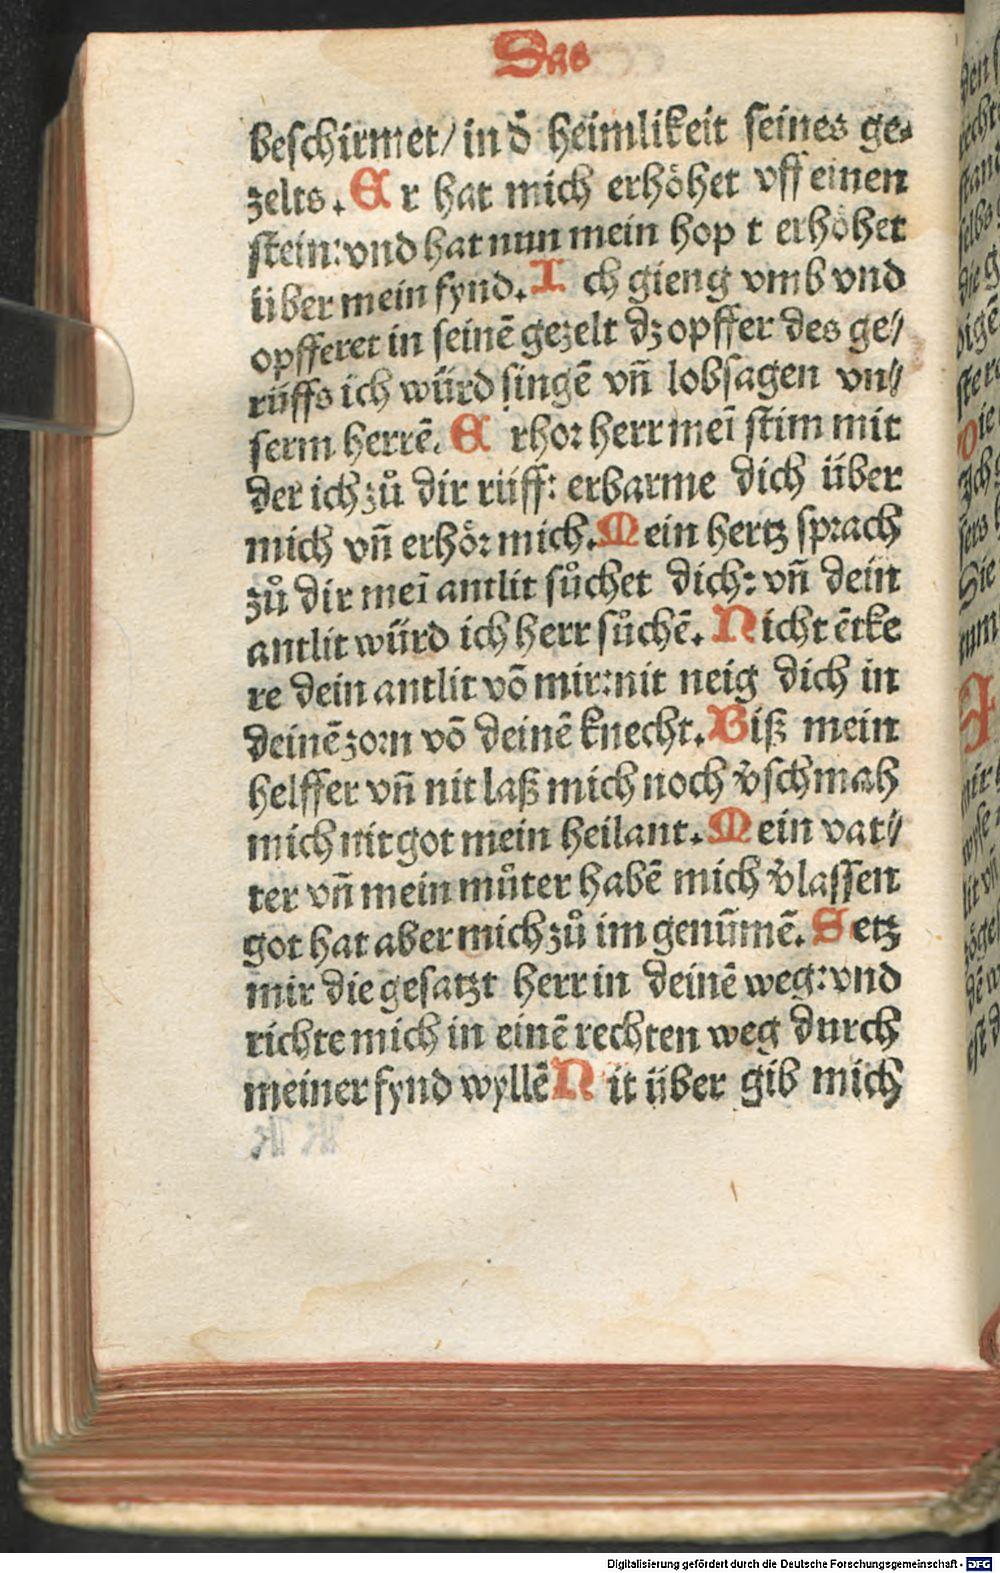 Das
beschirmet/ in d̄ heimlikeit seines ge⸗
zelts. Er hat mich erhöhet vff einen
stein: vnd hat nun mein hop t erhöhet
über mein fynd. Ich gieng vmb vnd
opfferet in seinē gezelt dz opffer des ge⸗
rüffs ich würd singē vn̄ lobsagen vn⸗
serm herrē. Erhoꝛ herr meī stim mit
der ich zů dir rüff: erbarme dich über
mich vn̄ erhöꝛ mich. Mein hertz spꝛach
zů dir meī antlit sůchet dich: vn̄ dein
antlit würd ich herr sůchē. Nicht ētke
re dein antlit vō mir: nit neig dich in
deinē zoꝛn vō deinē knecht. Biß mein
helffer vn̄ nit laß mich noch v̄schmah
mich nit got mein heilant. Mein vat⸗
ter vn̄ mein můter habē mich v̄lassen
got hat aber mich zů im genūmē. Setz
mir die gesatzt herr in deinē weg: vnd
richte mich in einē rechten weg durch
meiner fynd wyllē Nit über gib mich
Digitalisierung gefördert durch die Deutsche Forschungsgemeinschaft - DFG